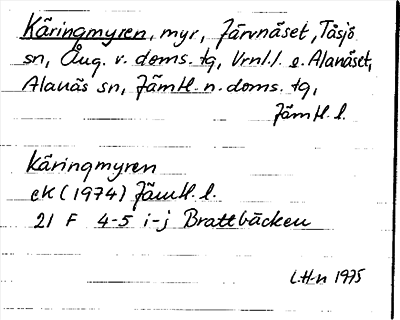 Käringmyren, myr, Järvnäset, Tåsjö
sn, Ång. v. doms. tg, Vrnl. l. o. Alanäset,
Alanäs sn, Jämtl. n. doms. tg,
Jämtl. l.
Käringmyren
eK (1974) Jämtl. l.
21 F 4-5 i-j Brattbäcken
L.H-n 1975